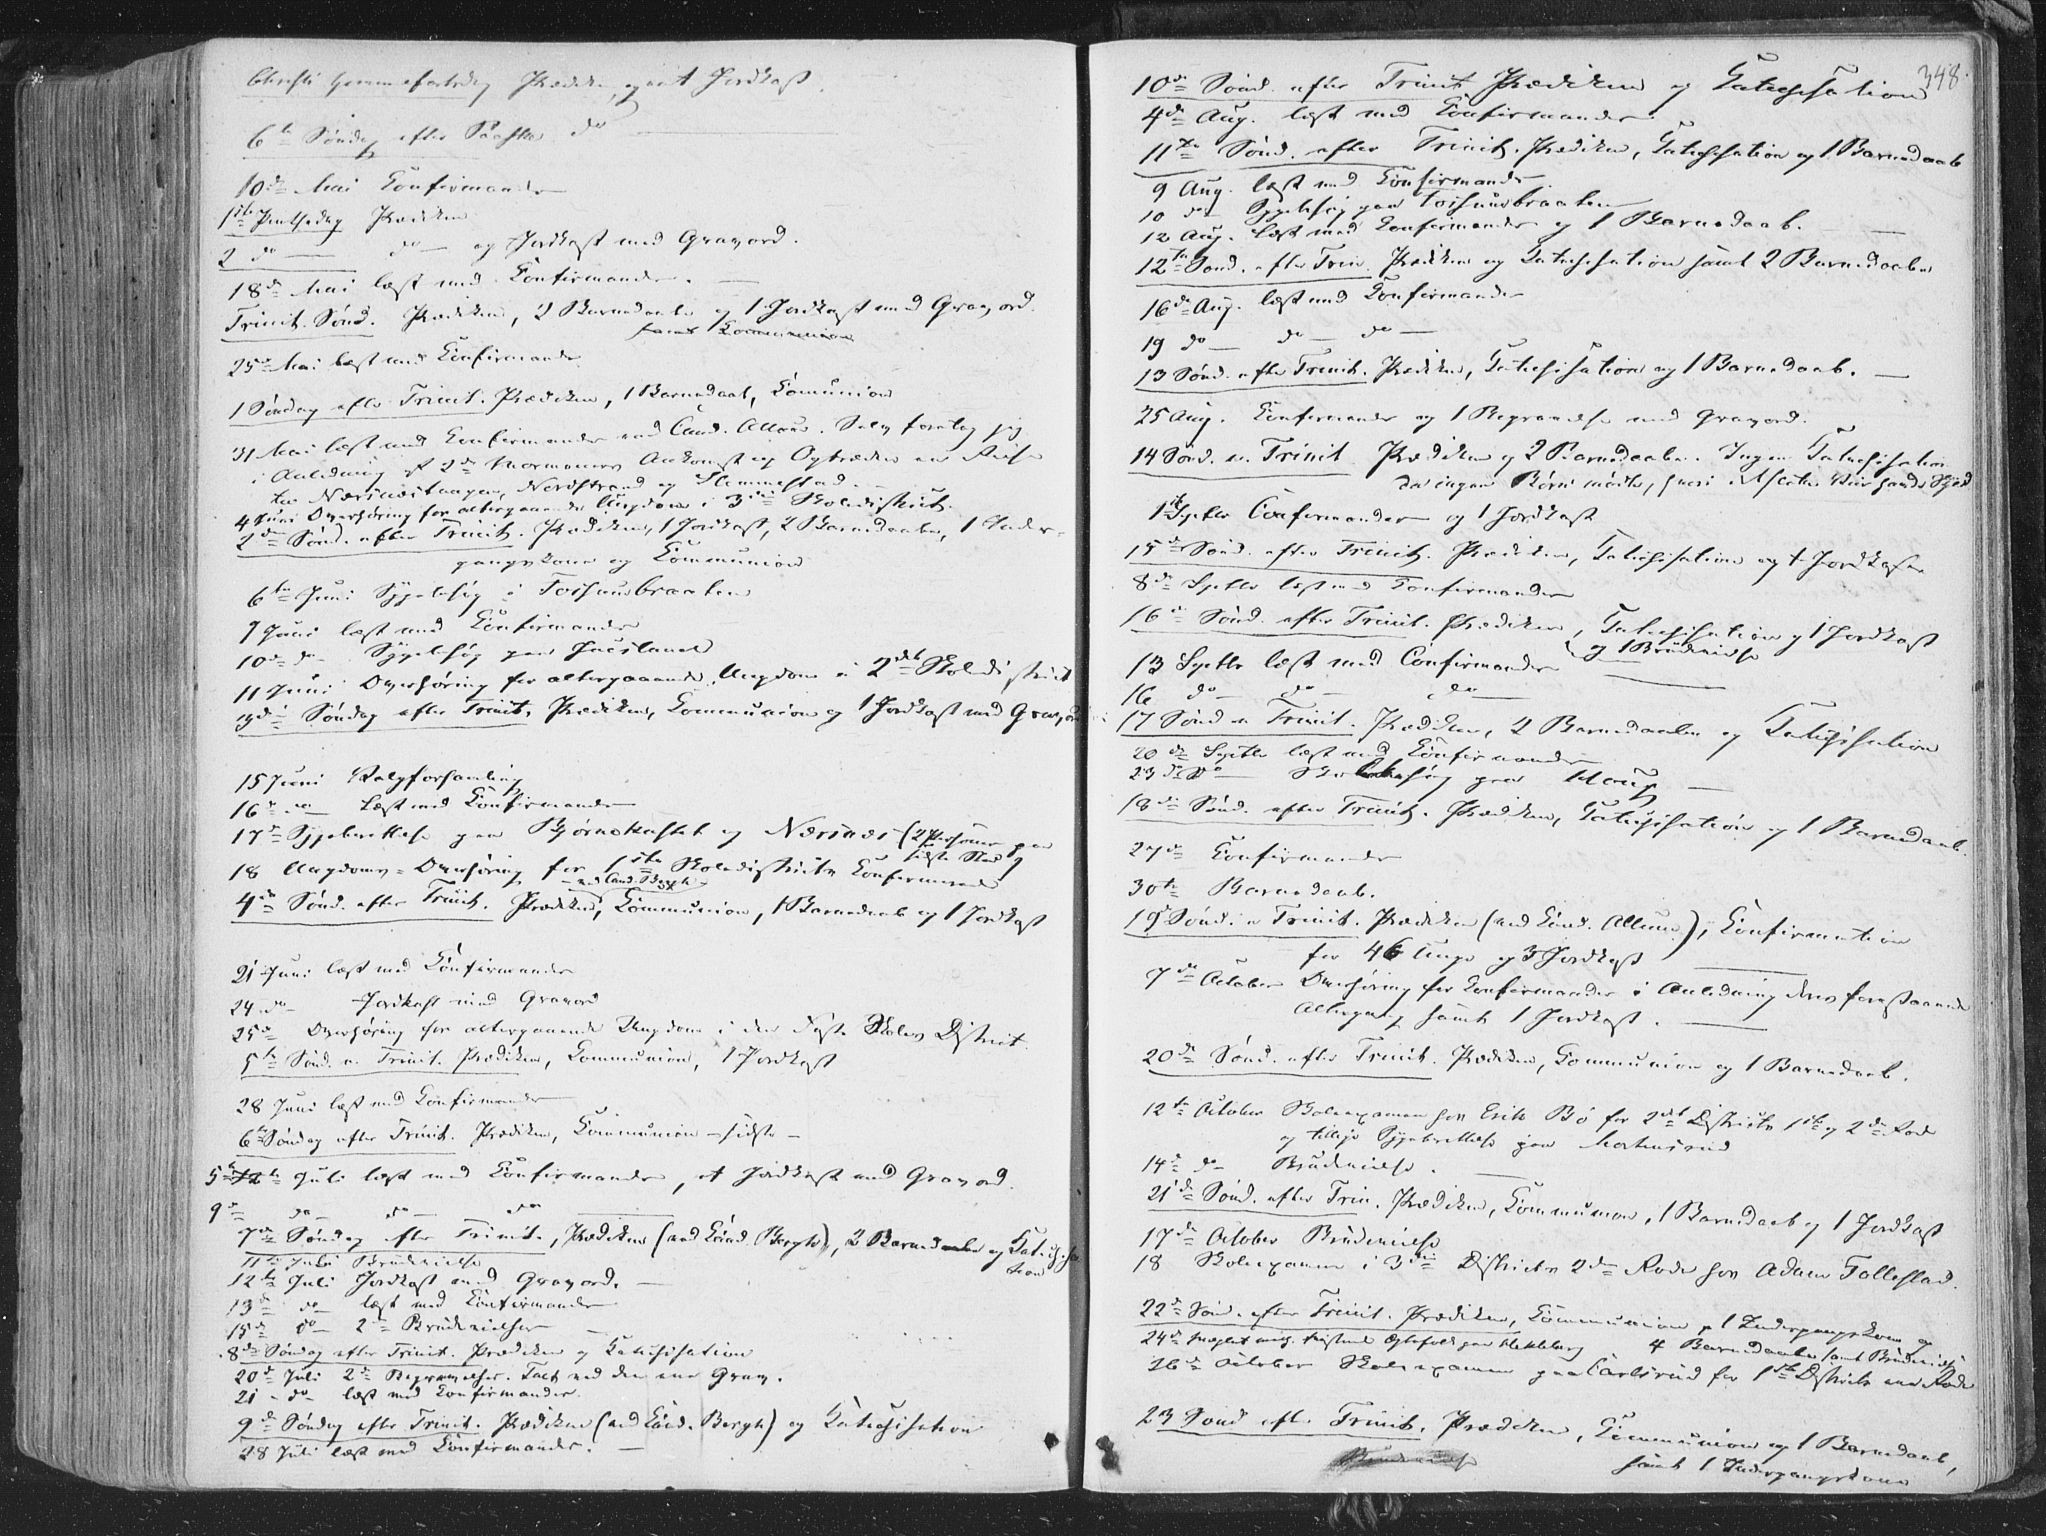 Christi Himmelfartsdag Prædiken, og et Jordkast.
6te Søndag efter Paaske do
10de Mai Confirmander
1ste Pintsedag Prædiken
2 do — do — og Jordkast med Gravord.
18de Mai læst med Confirmander.
Trinit. Sønd. Prædiken, 2 Barnedaab og 1 Jordkast med Gravord.
samt Communion
25de Mai læst med Confirmander
1 Søndag efter Trinit. Prædiken, 1 Barnedaab, Communion
31 Mai læst med Confirmander ved Cand. Allum. Selv foretog jeg
i Anledning af 2de Mormoners Ankomst og Optræden en Reise
til Nærsnestangen, Nordstrand og Slemmestad.
4 Juni Overhøring for altergaaende Ungdom i 3die Skoledistrict.
2den Sønd. efter Trinit. Prædiken, 1 Jordkast, 2 Barnedaaber, 1 Inder-
gangskone og Communion
6te Juni Sygebesøg i Torsunbraaten
7 Juni læst med Confirmander
10de do Sygebesøg paa
11 Juni Overhøring for altergaaende Ungdom i 2det Skoledistrict
3die Søndag efter Trinit. Prædiken, Communion og 1 Jordkast med Gravord
15 Juni Valgforsamling
16de do — læst med Confirmander
17de Sygeberettelse paa Bjørnekastet og Nærsnes (2 Personer paa
sidste Sted)
18 Ungdoms-Overhøring for 1ste Skoledistricts Confirmerede
ved Cand. Bergh
4de Sønd. efter Trinit. Prædiken, Communion, 1 Barnedaab og 1 Jordkast
21 Juni læst med Confirmander
24 do Jordkast med Gravord
25de Overhøring for altergaaende Ungdom i den faste Skoles District
5te Sønd. e. Trinit. Prædiken, Communion, 1 Jordkast
28 Juni læst med Confirmander
6te Søndag efter Trinit. Prædiken, Communion — sidste —
5te Juli læst med Confirmander, et Jordkast med Gravord.
9de do — do — do
7de Søndag efter Trinit., Prædiken (ved Cand. Bergh), 2 Barnedaaber og Catechisa-
tion
11te Juli Brudevielse
12te Juli Jordkast med Gravord. —
13de do læst med Confirmander
15de do 2de Brudevielser
8de Søndag efter Trinit. Prædiken og Catechisation
20de Juli 2de Begravelser. Talt ved den ene Grav.
21 — do læst med Confirmander.
9de Søndag efter Trinit. Prædiken (ved Cand. Bergh) og Catechisation
28 Juli læst med Confirmander. —
348.
10de Sønd. efter Trinit Prædiken og Catechisation
4de Aug. læst med Confirmander.
11te Sønd. efter Trinit. Prædiken, Catechisation og 1 Barnedaab
9 Aug. læst med Confirmander.
10 do Sygebesøg paa Torsunbraaten
12 Aug. læst med Confirmander og 1 Barnedaab. —
12te Sønd. efter Trin. Prædiken og Catechisation samt 2 Barnedaaber
16de Aug. læst med Confirmander
19 do — do — do —
13 Sønd. efter Trinit. Prædiken, Catechisation og 1 Barnedaab. —
25 Aug. Confirmander og 1 Begravelse med Gravord.
14 Sønd. e. Trinit Prædiken og 2 Barnedaaber. Ingen Catechisation
da ingen Børn mødte,
1ste Septbr Confirmander og 1 Jordkast
15de Sønd. efter Trinit. Prædiken, Catechisation og 1 Jordkast
8de Septbr læst med Confirmander
16de Sønd. efter Trinit. Prædiken, Catechisation og 1 Jordkast
og 1 Brudevielse
13 Septbr læst med Confirmander
16 do — do — do —
17 Sønd e Trinit. Prædiken, 2 Barnedaaber og Catechisation
20de Septbr læst med Confirmander
23de do — besøg paa Houg —
18de Sønd. efter Trinit. Prædiken, Catechisation og 1 Barnedaab.
27de Confirmander
30te Barnedaab.
19 Sønd. e Trinit. Prædiken (ved Cand. Allum), Confirmation
for 46 Unge og 3 Jordkast
7de October Overhøring for Confirmander i Anledning deres forestaaende
Altergang samt 1 Jordkast.
20de Sønd. efter Trinit. Prædiken, Communion og 1 Barnedaab.
12te October Skoleexamen hos Erik Bø for 2det Districts 1ste og 2de Rode
og tillige Sygeberettelse paa Mortensrud
14de do Brudevielse.
21de Sønd. efter Trin. Prædiken, Communion, 1 Barnedaab og 1 Jordkast
17de October Brudevielse
18 Skoleexamen i 3die Districts 2den Rode hos Adam Follestad.
22de Sønd. efter Trinit. Prædiken, Communion, 1 Indergangskone og
4 Barnedaaber samt Brudevielse
24de Mæglet mlg. tvistende Ægtefolk paa
26de October Skoleexamen paa Carlsrud for 1ste Districts ene Rode
23 Sønd. efter Trinit. Prædiken, Communion og 1 Barnedaab,
samt 1 Indergangskone
Brudevielse